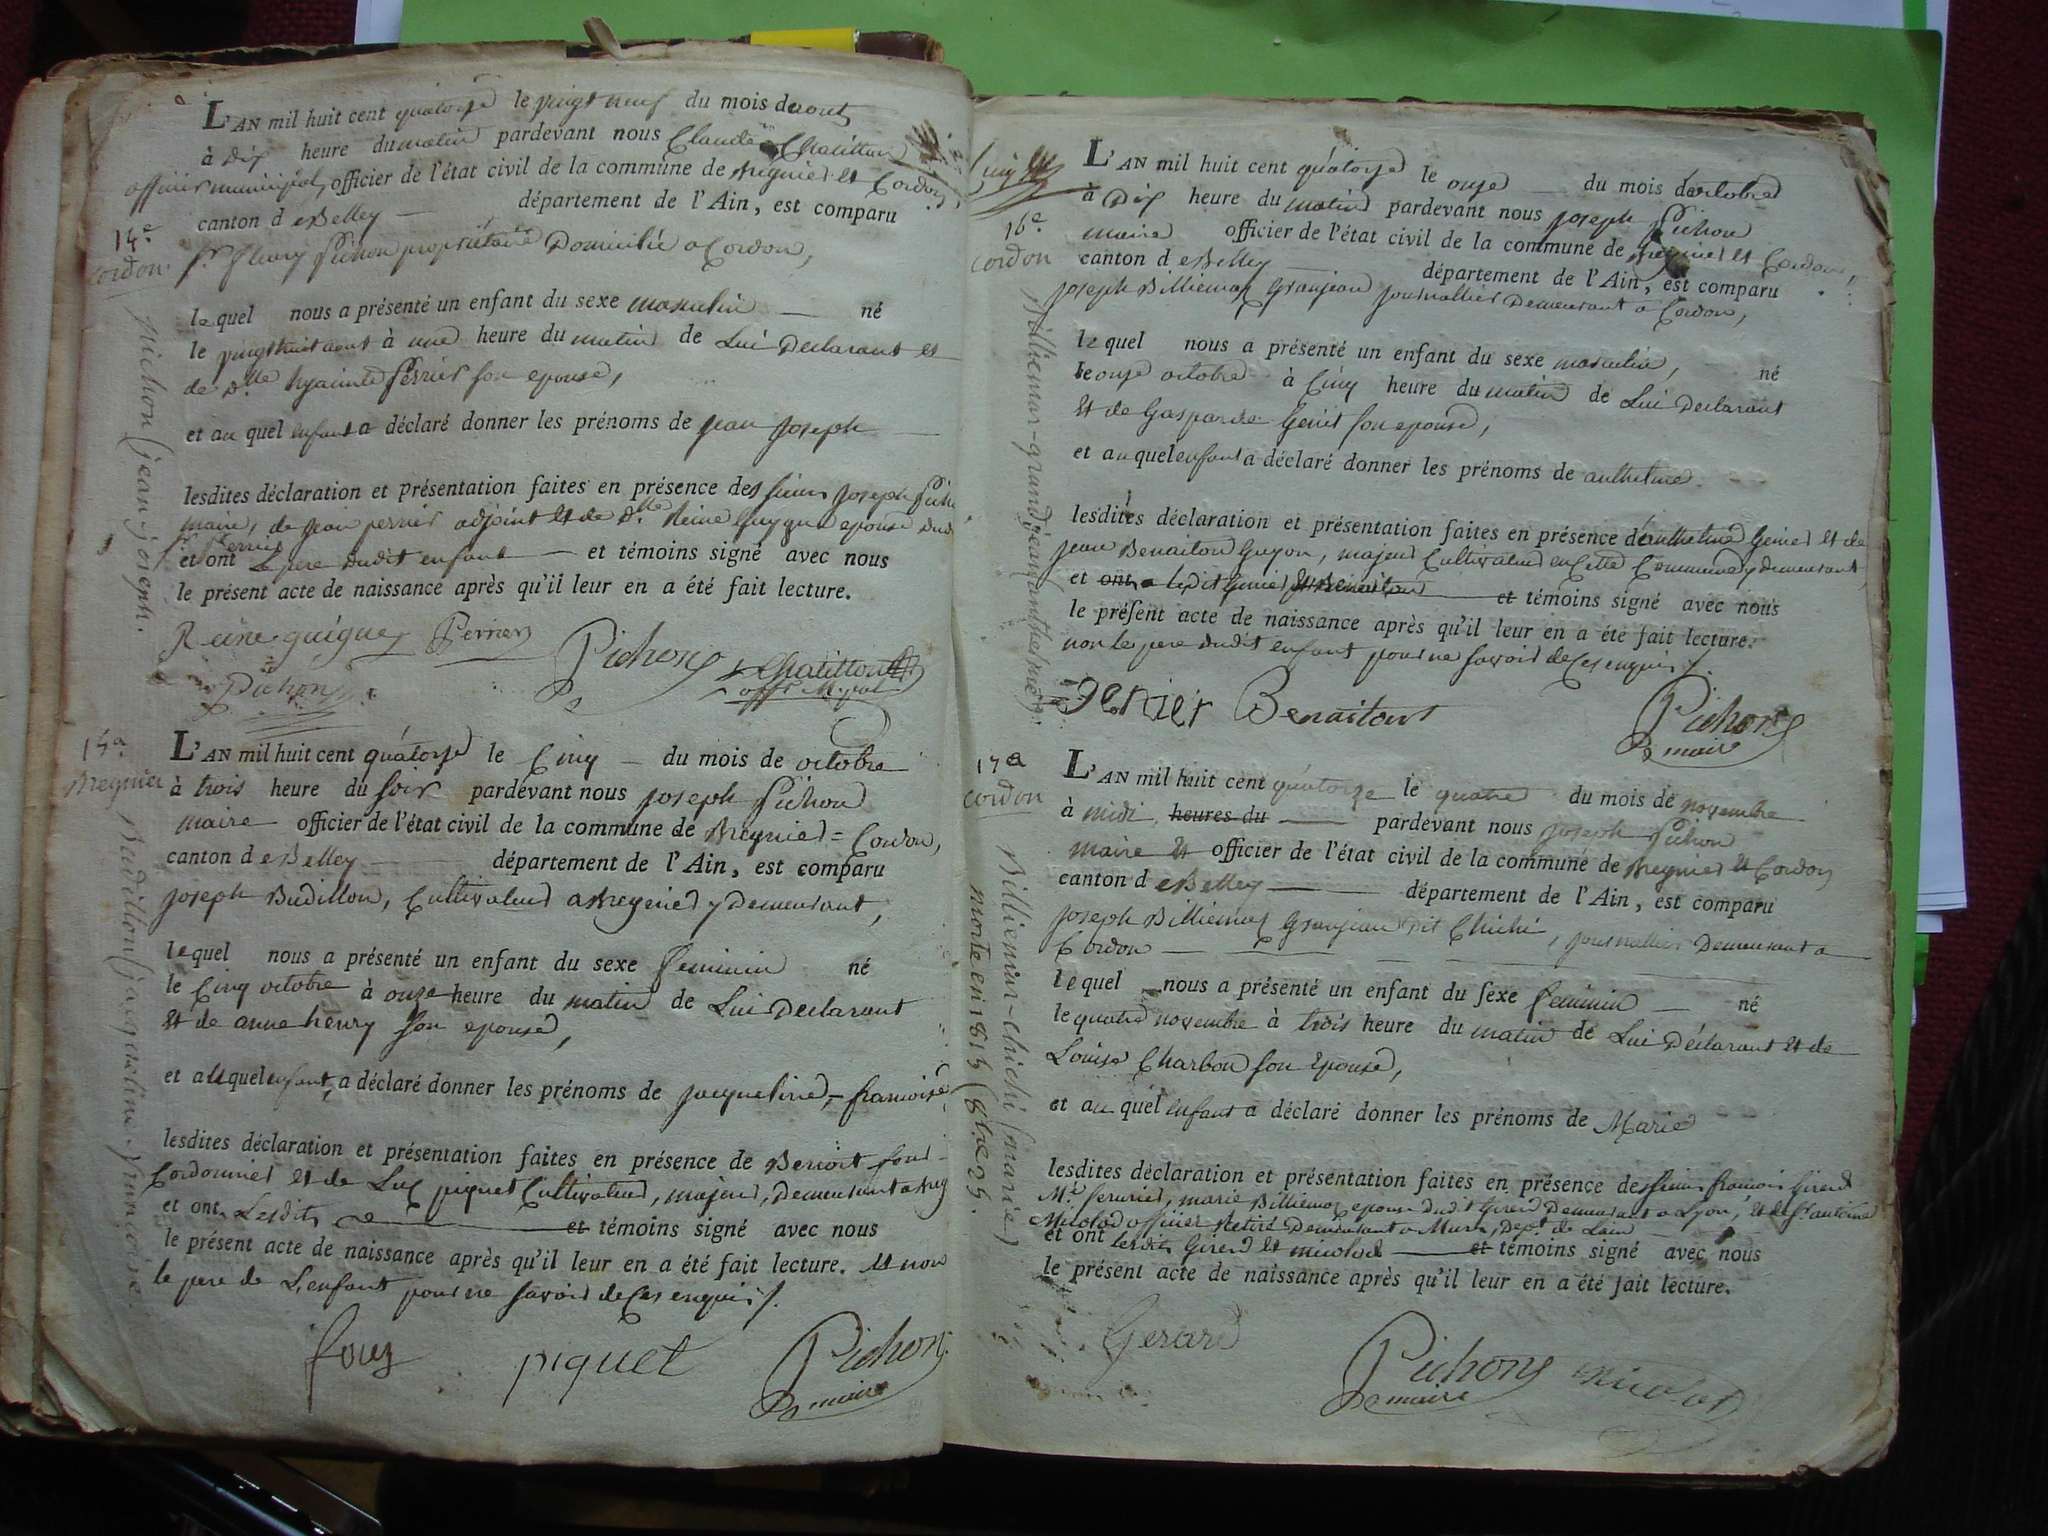 L'AN mil huit cent quatorze le vingt neuf du mois daout
à Dix heure du matin pardevant nous Claude Chatillon
officier municipal, officier de l'état civil de la commune de Bregnier et Cordon
canton de Belley département de l'Ain, est comparu
14e
Cordon
Sr. fleury Pichon propriétaire Domicilié a Cordon,
lequel nous a présenté un enfant du sexe masculin né
le vingt huit aout à une heure du matin de Lui Declarant et
de dlle hyacinte Perrier son epouse,
et au quel enfant a déclaré donner les prénoms de jean joseph
lesdites déclaration et présentation faites en présence des sieurs joseph Picho
maire, de jean perrier adjoint et de dlle Reine Guygue epouse dud
Sr Perrier
et ont Le pere dudit enfant et témoins signé avec nous
le présent acte de naissance après qu'il leur en a été fait lecture.
Reine guigue Perrier Pichon Chatillon
Pichon offr. M.pal
pichon (jean-joseph.
15e
Bregnier
L'AN mil huit cent quatorze le Cinq du mois de octobre
à trois heure du soir pardevant nous joseph Pichon
maire officier de l'état civil de la commune de Bregnier = Cordon,
canton de Belley département de l'Ain, est comparu
joseph Budillon, Cultivateur a Bregnier y demeurant,
lequel nous a présenté un enfant du sexe feminin né
le Cinq octobre à onze heure du matin de Lui Declarant
et de anne henry son epouse,
et au quel enfant, a déclaré donner les prénoms de jacqueline, francoise
lesdites déclaration et présentation faites en présence de Benoit four
Cordonnier et de Luc piquet Cultivateur, majeur, Demeurant a Breg
et ont Lesdits et témoins signé avec nous
le présent acte de naissance après qu'il leur en a été fait lecture. et non
le pere de L'enfant pour ne savoir de ces enquis /.
piquet Pichon
maire
Budillon (jacqueline-francoise.
16e
Cordon
L'AN mil huit cent quatorze le onze du mois doctobre
à Dix heure du matin pardevant nous joseph Pichon
maire officier de l'état civil de la commune de Bregnier et Cordon,
canton de Belley département de l'Ain, est comparu
joseph Billiemaz Granjean journallier Demeurant a Cordon,
lequel nous a présenté un enfant du sexe masculin, né
le onze octobre à Cinq heure du matin de Lui Declarant
et de Gasparde Genis son epouse,
et au quel enfant a déclaré donner les prénoms de anthelme.
lesdites déclaration et présentation faites en présence d'anthelme Genier et de
jean Benaiton Guyon, majeur Cultivateur en Cette Commune y demeurant,
et ont a ledit Genier et Benaiton et témoins signé avec nous
le présent acte de naissance après qu'il leur en a été fait lecture.
non le pere dudit enfant pour ne savoir de ces enquis /.
Genier Benaiton Pichon
maire
Billiemaz-grand jean (anthelme).
17e
Cordon
L'AN mil huit cent quatorze le quatre du mois de novembre
à midi, heures du pardevant nous joseph Pichon
maire et officier de l'état civil de la commune de Bregnier et Cordon
canton de Belley département de l'Ain, est comparu
joseph Billiemaz Granjean dit Chichi, journallier Demeurant a
Cordon
lequel nous a présenté un enfant du sexe feminin né
le quatre novembre à trois heure du matin de Lui Déclarant et de
Louise Charbon son Epouse,
et au quel enfant a déclaré donner les prénoms de Marie
lesdites déclaration et présentation faites en présence des sieurs francois Girerd
Me. serurier, marie Billiemaz epouse dudit Girerd Demeurant a Lyon, et de Sr. antoine
Micolod officier Retiré Demeurant a Murs, Dept. de Lain
et ont lesdits Girerd et micolod et témoins signé avec nous
le présent acte de naissance après qu'il leur en a été fait lecture.
Gerard Pichon
maire
Billiemaz-chichi (marie)
morte en 1815